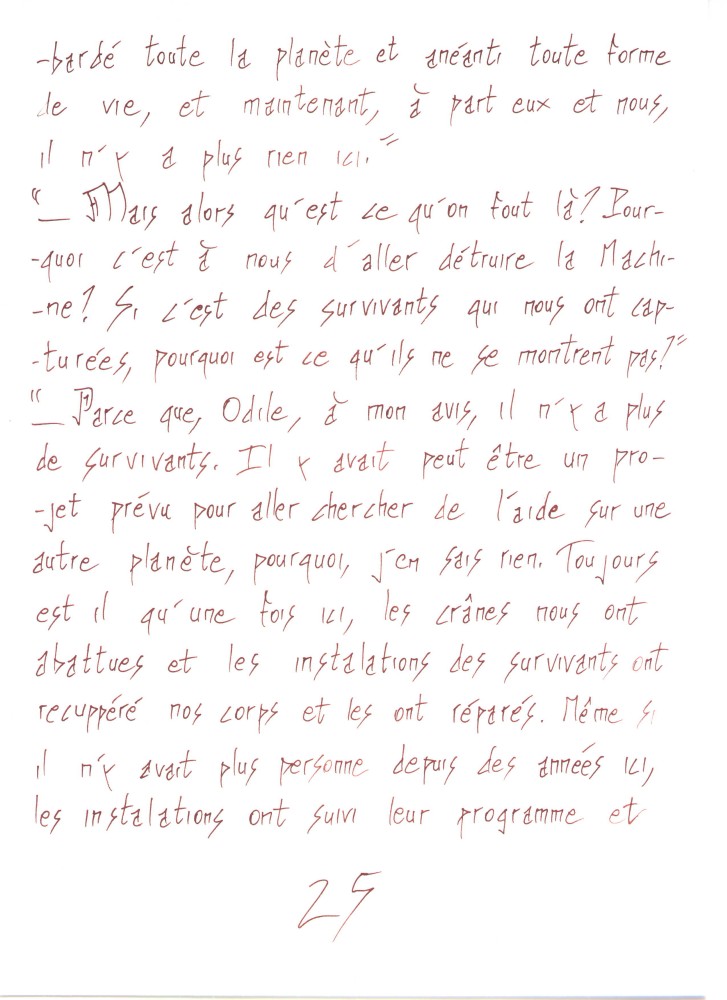 -bardé toute la planète et anéanti toute forme
de vie, et maintenant, à part eux et nous,
il n'y a plus rien ici."
"— Mais alors qu'est ce qu'on fout là? Pour-
-quoi c'est à nous d'aller détruire la Machi-
-ne? Si c'est des survivants qui nous ont cap-
-turées, pourquoi est ce qu'ils ne se montrent pas?"
"— Parce que, Odile, à mon avis, il n'y a plus
de survivants. Il y avait peut être un pro-
-jet prévu pour aller chercher de l'aide sur une
autre planète, pourquoi, j'en sais rien. Toujours
est il qu'une fois ici, les crânes nous ont
abattues et les instalations des survivants ont
recuppéré nos corps et les ont réparés. Même si
il n'y avait plus personne depuis des années ici,
les instalations ont suivi leur programme et
25